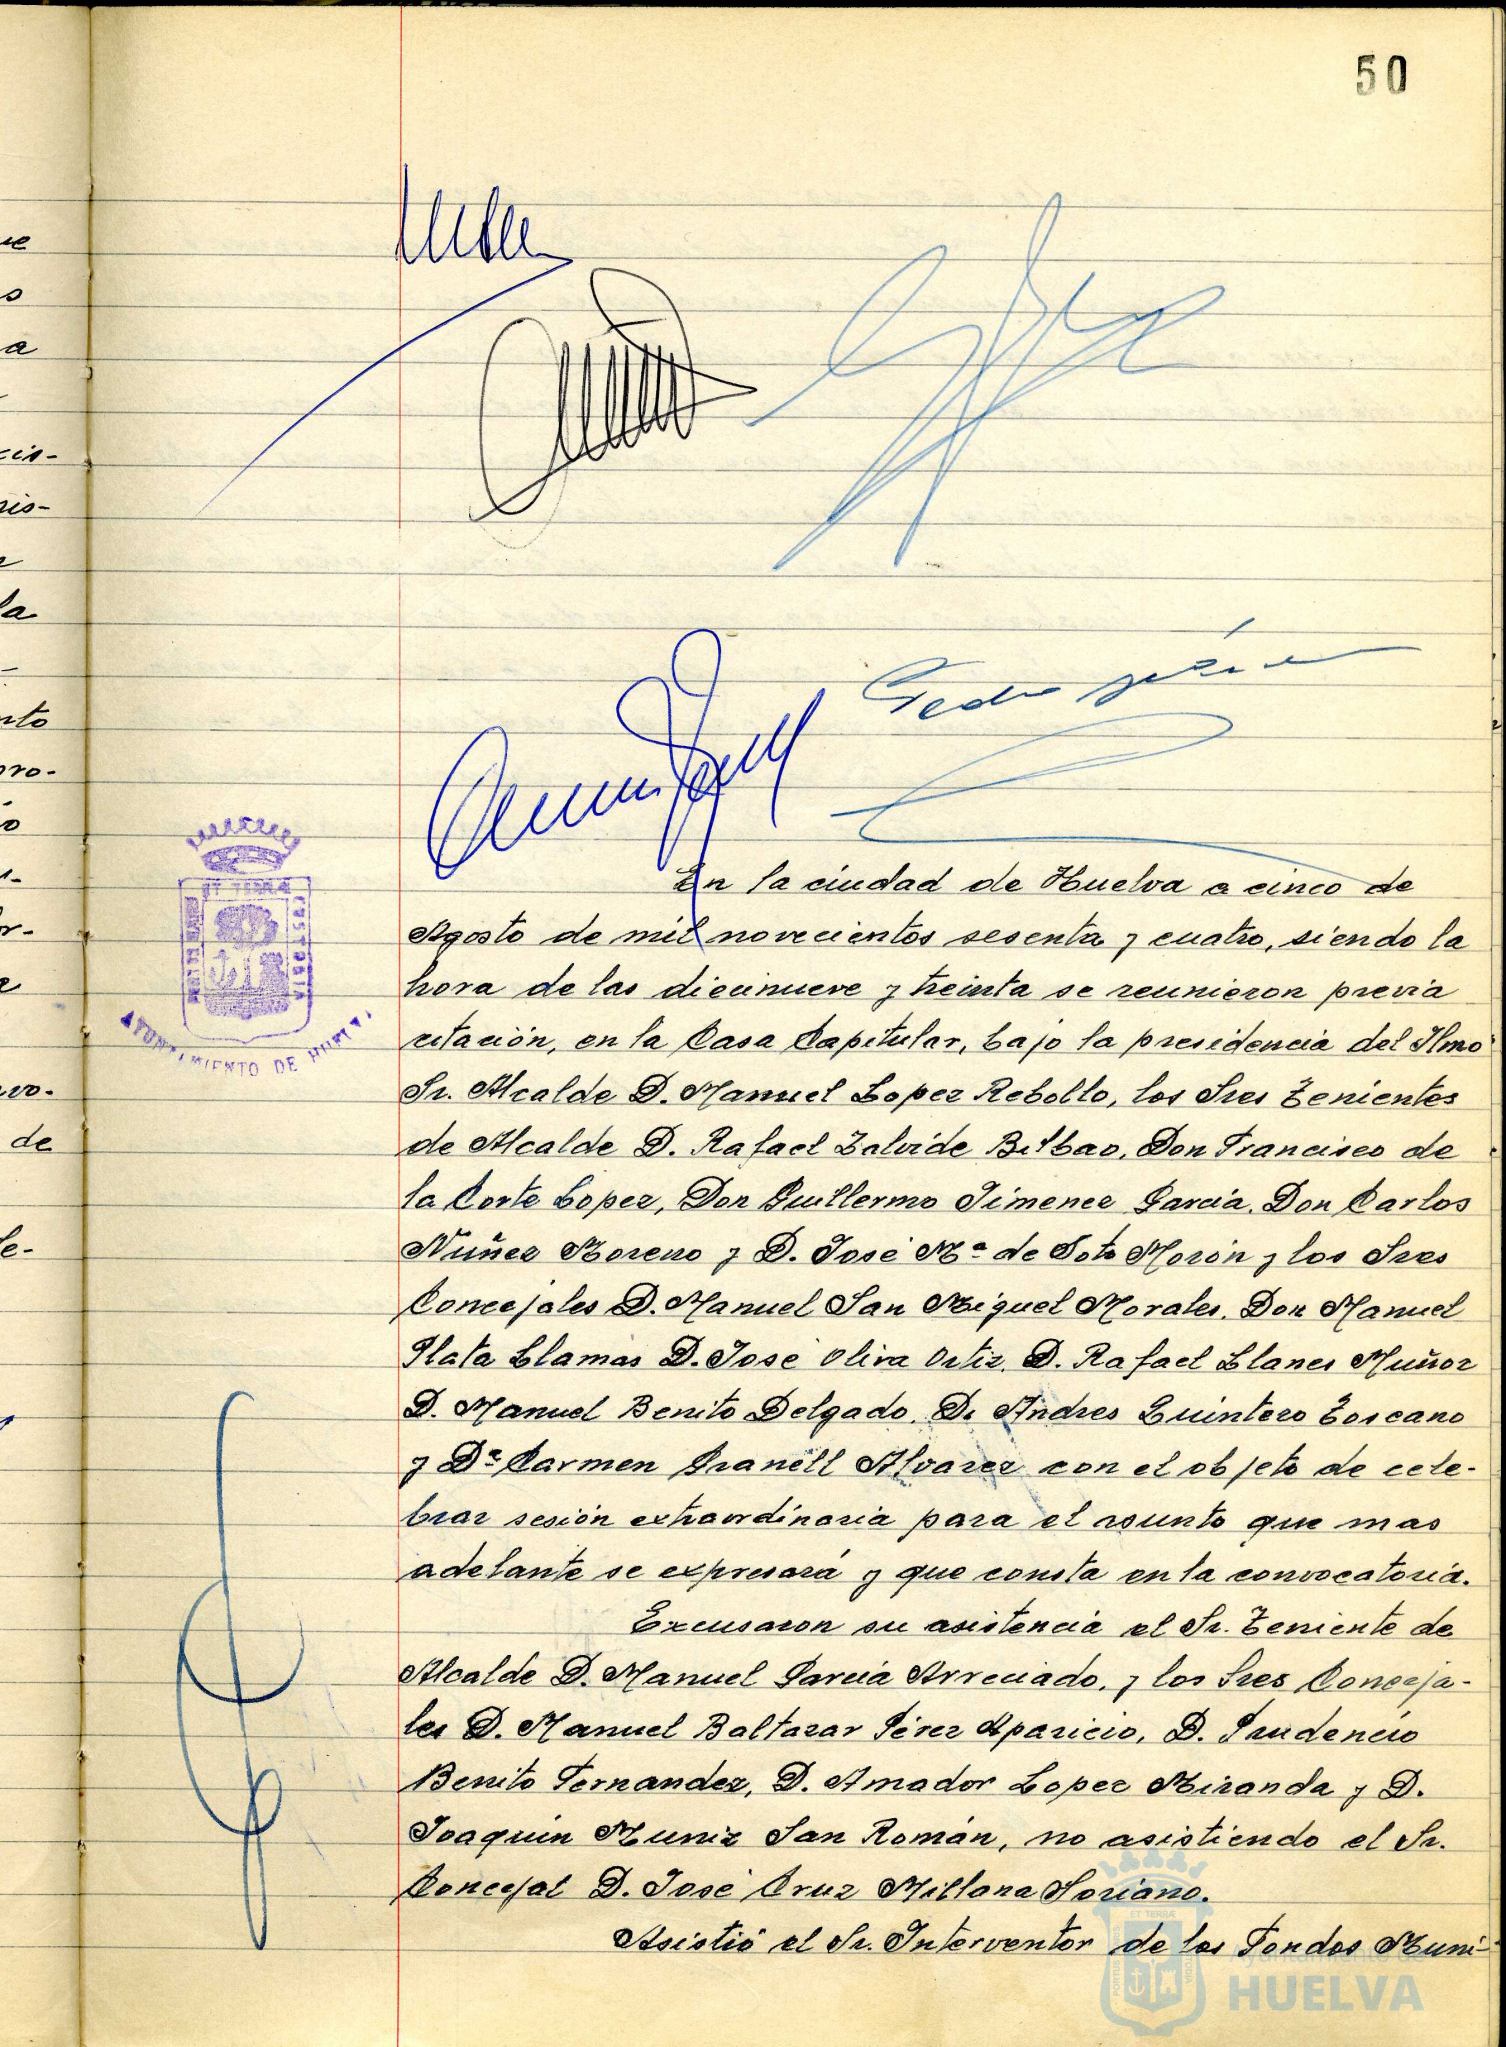 50
ue
s
a
cis-
ris-
la
nto
pro-
io
or-
a
vo-
de
le-
Pedro
En la ciudad de Huelva a cinco de
Agosto de mil novecientos sesenta y cuatro, siendo la
hora de las diecinueve y treinta se reunieron previa
citación, en la Casa Capitular, bajo la presidencia del Ilmo
Sr. Alcalde D. Manuel Lopez Rebollo, los Sres Tenientes
de Alcalde D. Rafael Zalvide Bilbao, Don Francisco de
la Corte Lopez, Don Guillermo Jimenez Garcia, Don Carlos
Nuñez Moreno y D. José Mª de Soto Morón y los Sres
Concejales D. Manuel San Miguel Morales, Don Manuel
Plata Llamas D. José Oliva Ortiz, D. Rafael Llanes Muñoz
D. Manuel Benito Delgado, D. Andres Quintero Toscano
y Dª Carmen Granell Alvarez con el objeto de cele-
brar sesión extraordinaria para el asunto que mas
adelante se expresará y que consta en la convocatoria.
Excusaron su asistencia el Sr. Teniente de
Alcalde D. Manuel Garcia Arreciado, y los Sres Conceja-
les D. Manuel Baltasar Pérez Aparicio, D. Prudencio
Benito Fernandez, D. Amador Lopez Miranda y D.
Joaquin Muniz San Román, no asistiendo el Sr.
Concejal D. José Cruz Millana Soriano.
Asistió el Sr. Interventor de los Fondos Muni-
AYUNTAMIENTO DE HUELVA
Ayuntamiento de
HUELVA